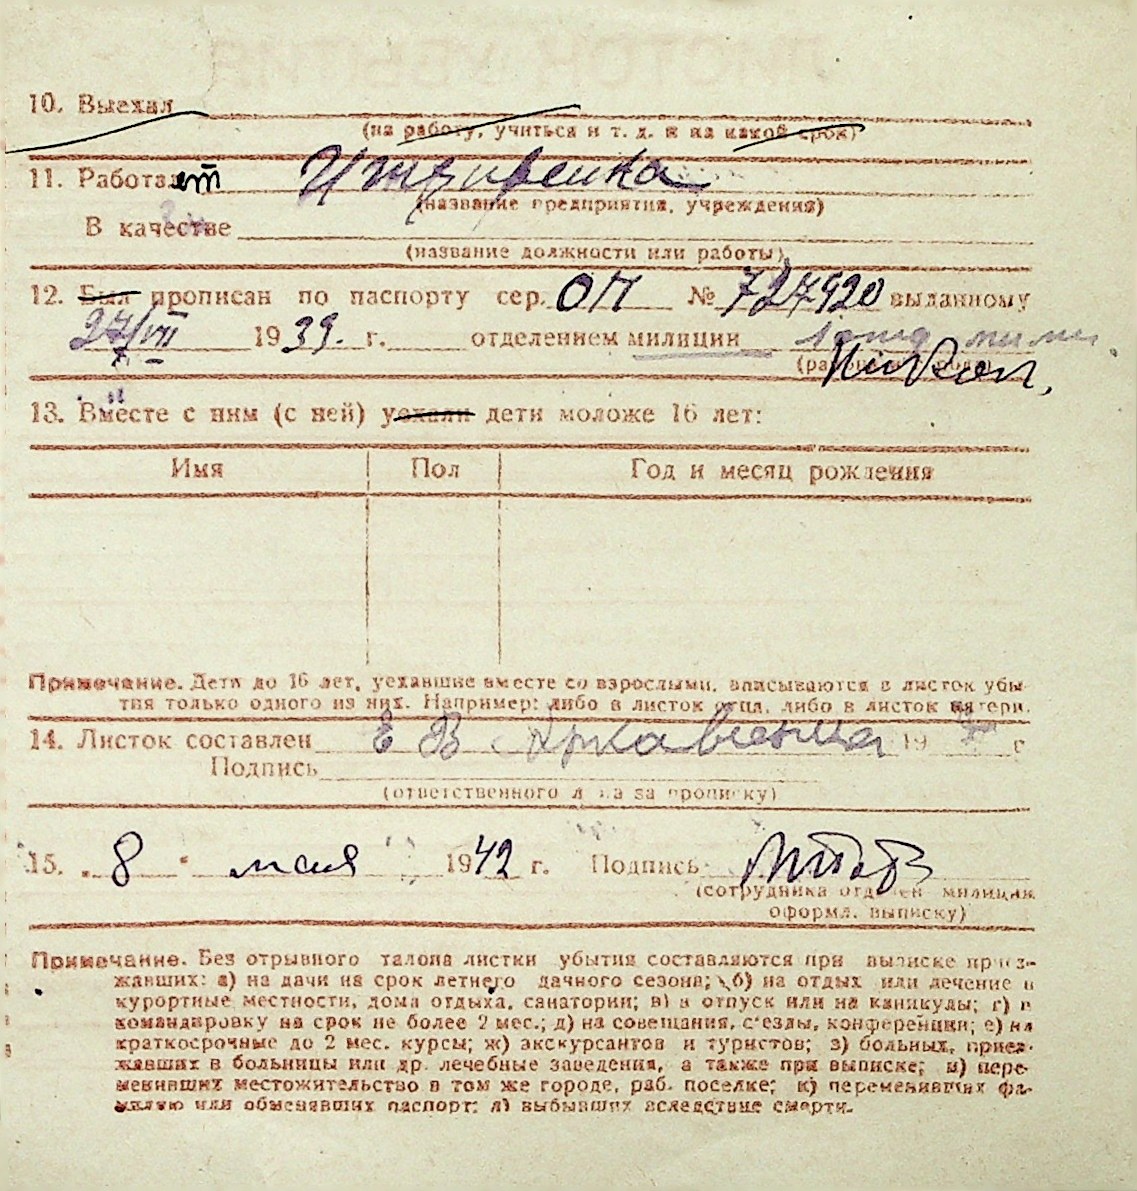 10. Выехал
(на работу, учиться и т. д. и на какой срок)
11. Работает Иждивенка
(название предприятия, учреждения)
В качестве
(название должности или работы)
12. Был прописан по паспорту сер. ОП № 727920 выданному
27/VII 1939. г. отделением милиции
13. Вместе с ним (с ней) уехали дети моложе 16 лет:
Имя Пол Год и месяц рождения
Примечание. Дети до 16 лет, уехавшие вместе со взрослыми, вписываются в листок убы-
тия только одного из них. Например: либо в листок отца, либо в листок матери.
14. Листок составлен Е В 19 г
Подпись
(ответственного лица за прописку)
15. „ 8 " мая 1942 г. Подпись
(сотрудника отделен милиции
оформл. выписку)
Примечание. Без отрывного талона листки убытия составляются при выписке приез-
жавших: а) на дачи на срок летнего дачного сезона; б) на отдых или лечение в
курортные местности, дома отдыха, санатории; в) в отпуск или на каникулы; г) в
командировку на срок не более 2 мес.; д) на совещания, съезды, конференции; е) на
краткосрочные до 2 мес. курсы; ж) экскурсантов и туристов; з) больных, приез-
жавших в больницы или др. лечебные заведения, а также при выписке; и) пере-
менивших местожительство в том же городе, раб. поселке; к) переменивших фа-
милию или обменявших паспорт; л) выбывших вследствие смерти.